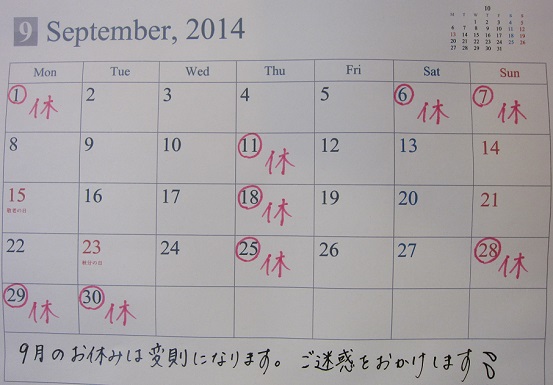 9 September, 2014
10
Mon Tue Wed Thu Fri Sat Sun
1 休 2 3 4 5 6 休 7 休
8 9 10 11 休 12 13 14
15 16 17 18 休 19 20 21
敬老の日
22 23 24 25 休 26 27 28 休
秋分の日
29 休 30 休
9月のお休みは変則になります。ご迷惑をおかけします